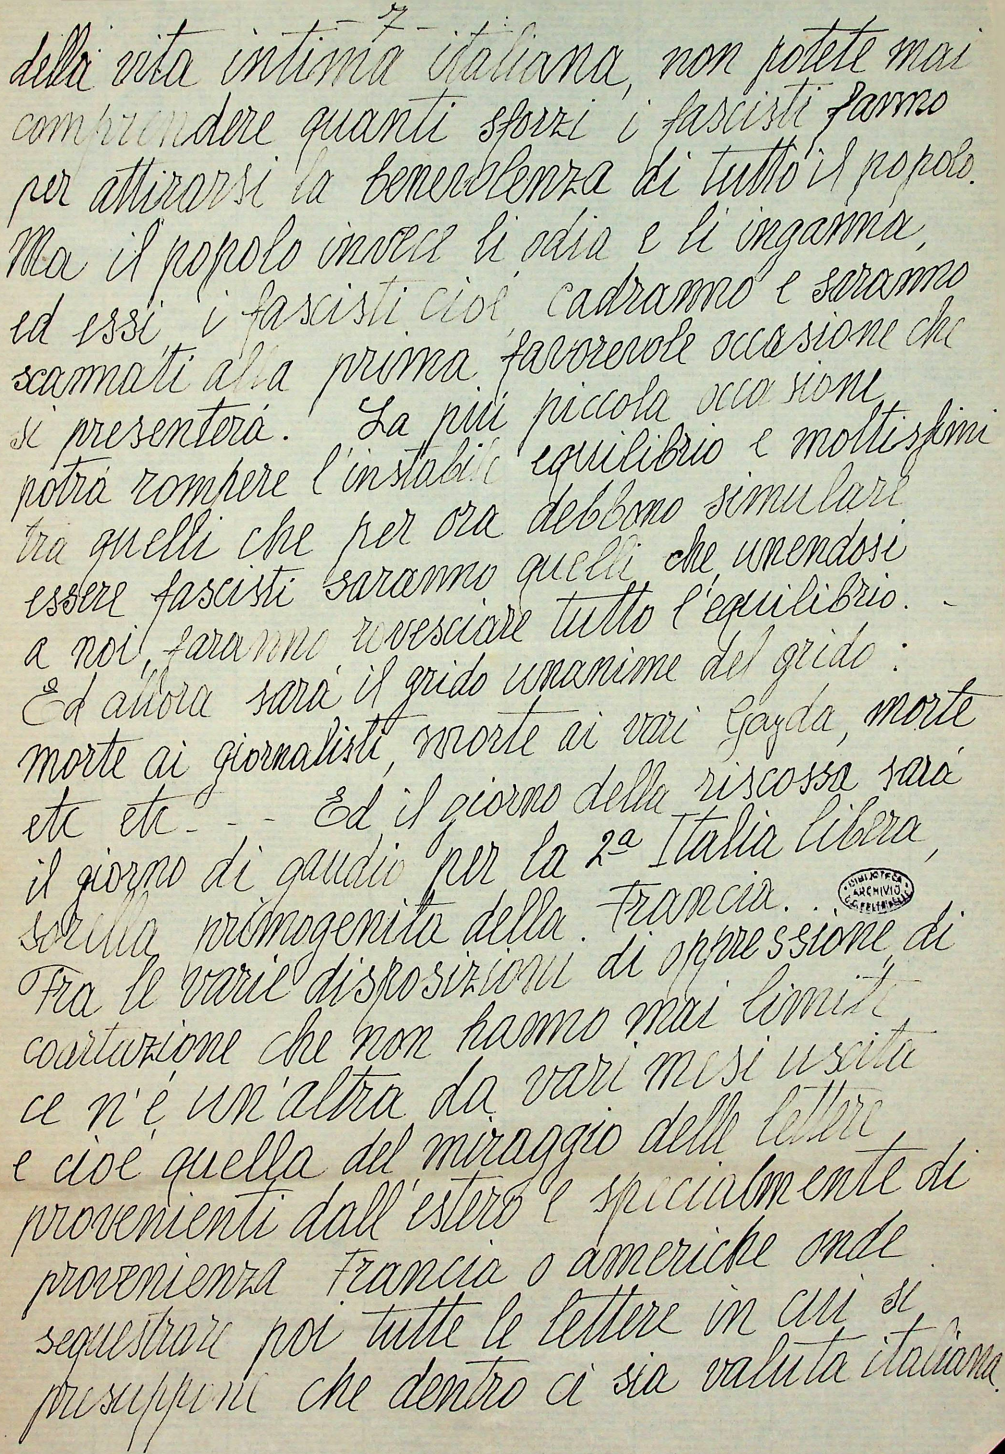 7
della vita intima italiana, non potete mai
comprendere quanti sforzi i fascisti fanno
per attirarsi la benevolenza di tutto il popolo.
Ma il popolo invece li odia e li inganna,
ed essi i fascisti cioè, cadranno e saranno
scannati alla prima favorevole occasione che
si presenterà. La più piccola occasione
potrà rompere l'instabile equilibrio e moltissimi
tra quelli che per ora debbono simulare
essere fascisti saranno quelli che, unendosi
a noi, faranno rovesciare tutto l'equilibrio. -
Ed allora sarà il grido unanime del grido:
morte ai giornalisti, morte ai vari Gayda, morte
etc etc - - - Ed il giorno della riscossa sarà
il giorno di gaudio per la 2a Italia libera,
sorella primogenita della Francia. .
BIBLIOTECA ARCHIVIO G.G. FELTRINELLI
Fra le varie disposizioni di oppressione, di
coartazione che non hanno mai limiti
ce n'è un'altra da vari mesi uscita
e cioè quella del miraggio delle lettere,
provenienti dall'estero e specialmente di
provenienza Francia o americhe onde
sequestrare poi tutte le lettere in cui si
presuppone che dentro ci sia valuta italiana.